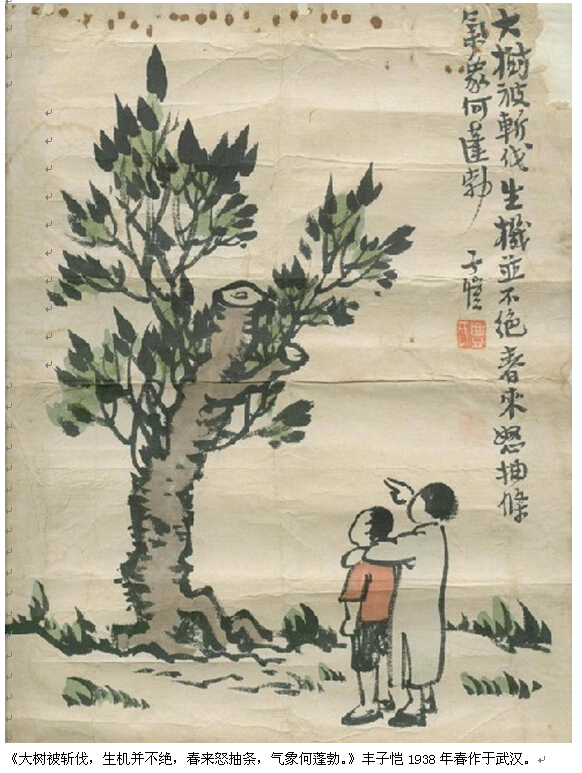 大樹被斬伐生機並不绝春來怒抽條
氣象何蓬勃
子愷
豐氏
《大树被斩伐，生机并不绝，春来怒抽条，气象何蓬勃。》丰子恺 1938 年春作于武汉。